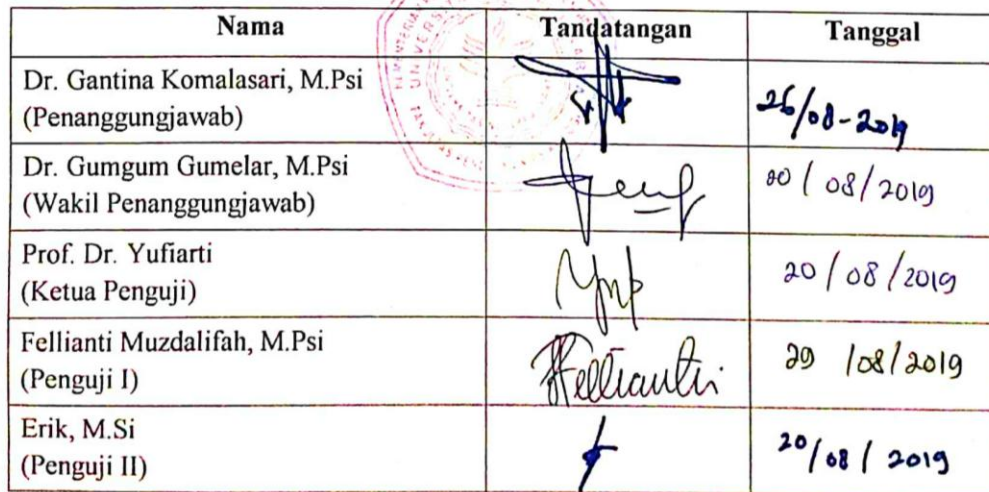 Nama Tandatangan Tanggal
Dr. Gantina Komalasari, M.Psi
(Penanggungjawab) 26/08-2019
Dr. Gumgum Gumelar, M.Psi
(Wakil Penanggungjawab) /08/2019
Prof. Dr. Yufiarti
(Ketua Penguji) 20/08/2019
Fellianti Muzdalifah, M.Psi
(Penguji I) Fellianti 29/08/2019
Erik, M.Si
(Penguji II) 20/08/2019